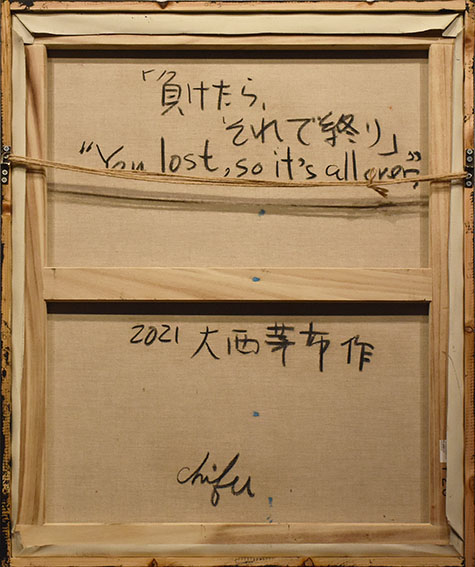 「負けたら、
それで終り」
"You lost, so it's all over"
2021 大西芽布 作
chifu